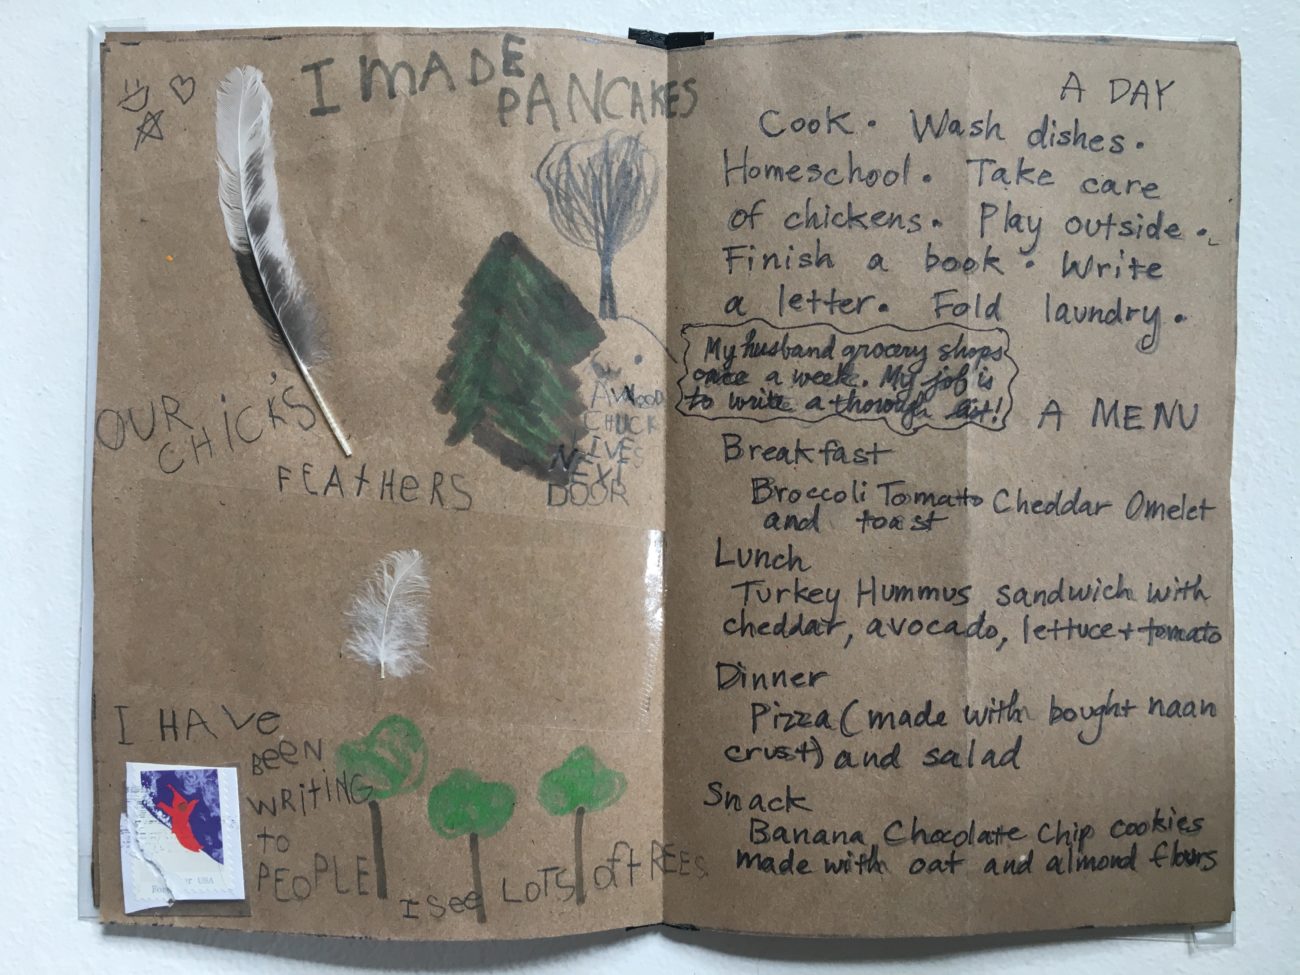 I MADE
PANCAKES
OUR
CHiCK'S
FEAtHERS
A WOOD
CHUCK
LIVES
NEXT
DOOR
I HAVe
BEEN
WRITING
to
PEOPLE
I See LOTS OF tREES
USA
A DAY
Cook. Wash dishes.
Homeschool. Take care
of chickens. Play outside.
Finish a book. Write
a letter. Fold laundry.
My husband grocery shops
once a week. My job is
to write a thorough list!
A MENU
Breakfast
Broccoli Tomato Cheddar Omelet
and toast
Lunch
Turkey Hummus sandwich with
cheddar, avocado, lettuce + tomato
Dinner
Pizza (made with bought naan
crust) and salad
Snack
Banana Chocolate Chip cookies
made with oat and almond flours